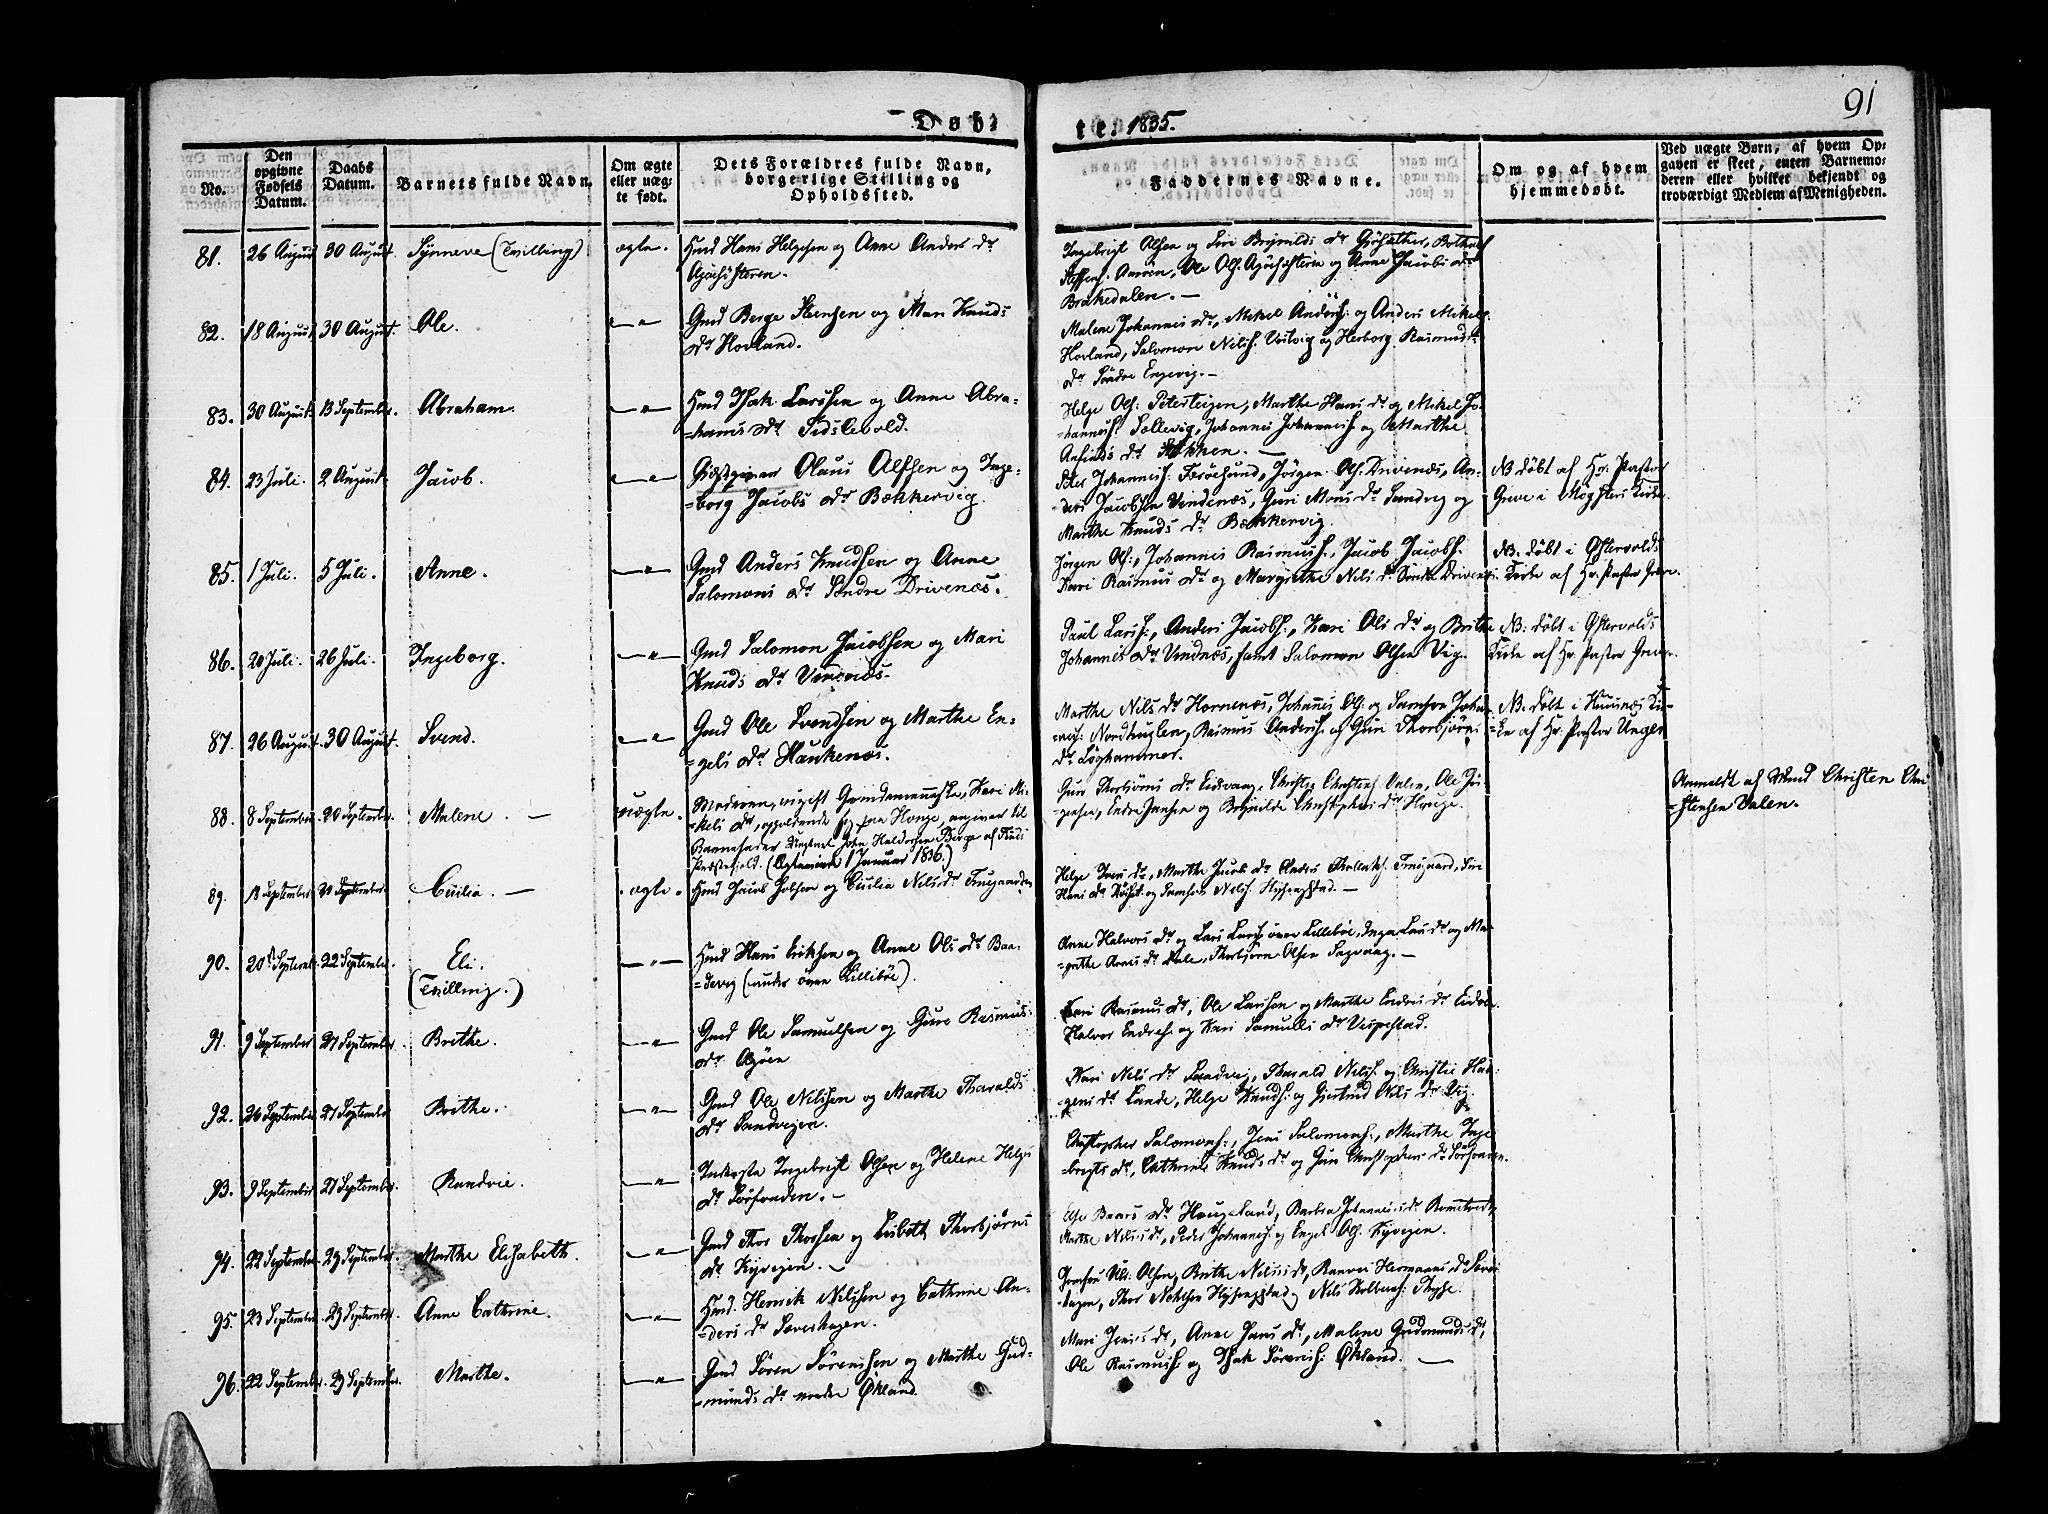 91
Døb-
te. 1835.
No.
Den opgivne Fødsels Datum.
Daabs Datum.
Barnets fulde Navn.
Om ægte eller uæg-te født.
Dets Forældres fulde Navn, borgerlige Stilling og Opholdssted.
Faddernes Navne.
Om og af hvem hjemmedøbt.
Ved uægte Børn, af hvem Op-gaven er skeet, enten Barnemo-deren eller hvilket bekjendt og troværdigt Medlem af Menigheden.
81. 26 August 30 August. Synneve (Tvilling) ægte. Hmd Hans Helgesen og Anne Anders Dr
Ingebrigt Olsen og Siri Brynilds Dr
Anne Jacobs Dr
Brakedalen. —
82. 18 August 30 August. Ole. —"— Gmd Berge Steensen og Mari Knuds
Dr Hovland.
Malene Johannes Dr, Mikel Anders: og Anders Mikels:
Hovland, Salomon Nils: Vestvig og Herborg Rasmus
Dr Søndre Engevig. —
83. 30 August. 13 September. Abraham. —"— Hmd Isak Larssen og Anne Abra-
=hams Dr Sidslevold.
Helge Ols: Peterteigen, Marthe Hans Dr og Mikel Jo-
=hannes: Sollevig, Johannes Johannes: og Marthe
Anfinds Dr
84. 23 Juli. 2 August. Jacob. —"— Gjæstgiver Olaus Olsen og Inge-
=borg Jacobs Dr Bækkervig.
Peder Johannes: Forøesund, Jørgen Ols: Drivenæs, An-
=ders Jacobsen Vindenæs, Guri Mons Dr Sandvig og
Marthe Knuds Dr Bækkervig.
NB døbt af Hr: Pastor
Greve i Møgsters Kirke.
85. 1 Juli. 5 Juli. Anne. —"— Gmd Anders Knudsen og Anne
Salomons Dr Søndre Drivenæs.
Jørgen Ols:, Johannes Rasmus:, Jacob Jacobs:
Kari Rasmus Dr og Margrethe Nils Dr Søndre Drivenæs.
NB. døbt i Østervolds
Kirke af Hr: Pastor Greve.
86. 20 Juli. 26 Juli. Ingeborg. —"— Gmd Salomon Jacobsen og Mari
Knuds Dr Vinenæs.
Paul Lars:, Anders Jacobs:, Kari Ols Dr og Brithe
Johannes Dr Vindnæs, samt Salomon Olsen Vig.
NB: døbt i Østervolds
Kirke af Hr: Pastor Greve.
87. 26 August. 30 August. Svend. —"— Gmd Ole Svendsen og Marthe En-
=gels Dr Haukenæs.
Marthe Nils Dr Hornenæs, Johannes Ols: og Samson Johan-
Nordhuglen, Rasmus Anders: og Guri Thorbjørns
Dr Løghammer.
NB. døbt i Huusnæs Kir-
=ke af Hr. Pastor Unger
88. 8 September 20 September. Malene — uægte. Moderen, ugift Qvindemenneske, Kari Mi-
=kels Dr, opholdende sig paa Houge, angiver til
Barnefader Ungkarl John Haldorsen Berge af
Præstegield. 1 Januar 1836.)
Guri Thorbjørns Dr Eidsvaag, Christen Christens: Valen, Ole Jør-
gensen, Endre Jensen og Brynilde Christopher Dr Houge.
Anmeldt af Gmd Christen Chri-
=stensen Valen.
89. September. Cicilia. — ægte. Hmd Jacob Jobsen og Cicilia Nils Dr
Helge Ivers Dr, Marthe Jacob Dr
Hans Dr og Samson Nils: —
90. 20 Septemb. 22 September. Eli. —"— Hmd Hans Eriksen og Anne Ols Dr Baa-
(Tvilling.)
=devig (under øvre Lillebøe).
Anne Halvors Dr og Lars Lars: øvre Lillebøe, Inga Lars Dr og Ma-
=grethe Arnes Dr Dale, Thorbjørn Olsen Sagvaag. —
91. 9 September 27 September. Brithe. —"— Gmd Ole Samuelsen og Guro Rasmus
Dr
Kari Rasmus Dr, Ole Larssen og Marthe Endres Dr
Halvor Endres: og Kari Samuels Dr Vespestad.
92. 26 September 27 September Brithe. —"— Gmd Ole Nilssen og Marthe Tharalds
Dr Sandvigen.
Kari Nils Dr Sandvig, Tharald Nils: og Christie Haa-
=gens Dr Lande, Helge Knuds: og Gjertrud Nils Dr Vig.
93. 9 September 27 September. Randvie. —"— Inderste Ingebrigt Olsen og Helene Helges
Dr Sørfonden. —
Christopher Salomons:, Jens Salomons:, Marthe Inge-
=brigts Dr, Cathrine Knuds Dr og Guri Christophers Dr
94. 22 September. 29 September. Marthe Elisabeth. —"— Gmd Thor Thorsen og Lisbeth Thorbjørns
Dr Kyvigen. —
Else Baars Dr Hougeland, Barbra Johannes Dr
Marthe Nils Dr, Peder Johannes: og Engel Ols: Kyvigen.
95. 23 September. 29 September. Anne Cathrine. —"— Hmd. Henrik Nilssen og Cathrine An-
=ders Dr Sæveshagen.
Olsen, Brithe Nils Dr, Ranvei Hermanns Dr
96. 22 September. 29 September. Marthe. —"— Gmd Søren Sørenssen og Marthe Gud-
=munds Dr nordre Økland.
Mari Jens Dr, Anne Hans Dr, Malene Gudmunds Dr,
Ole Rasmus: og Isak Sørens: Økland. —